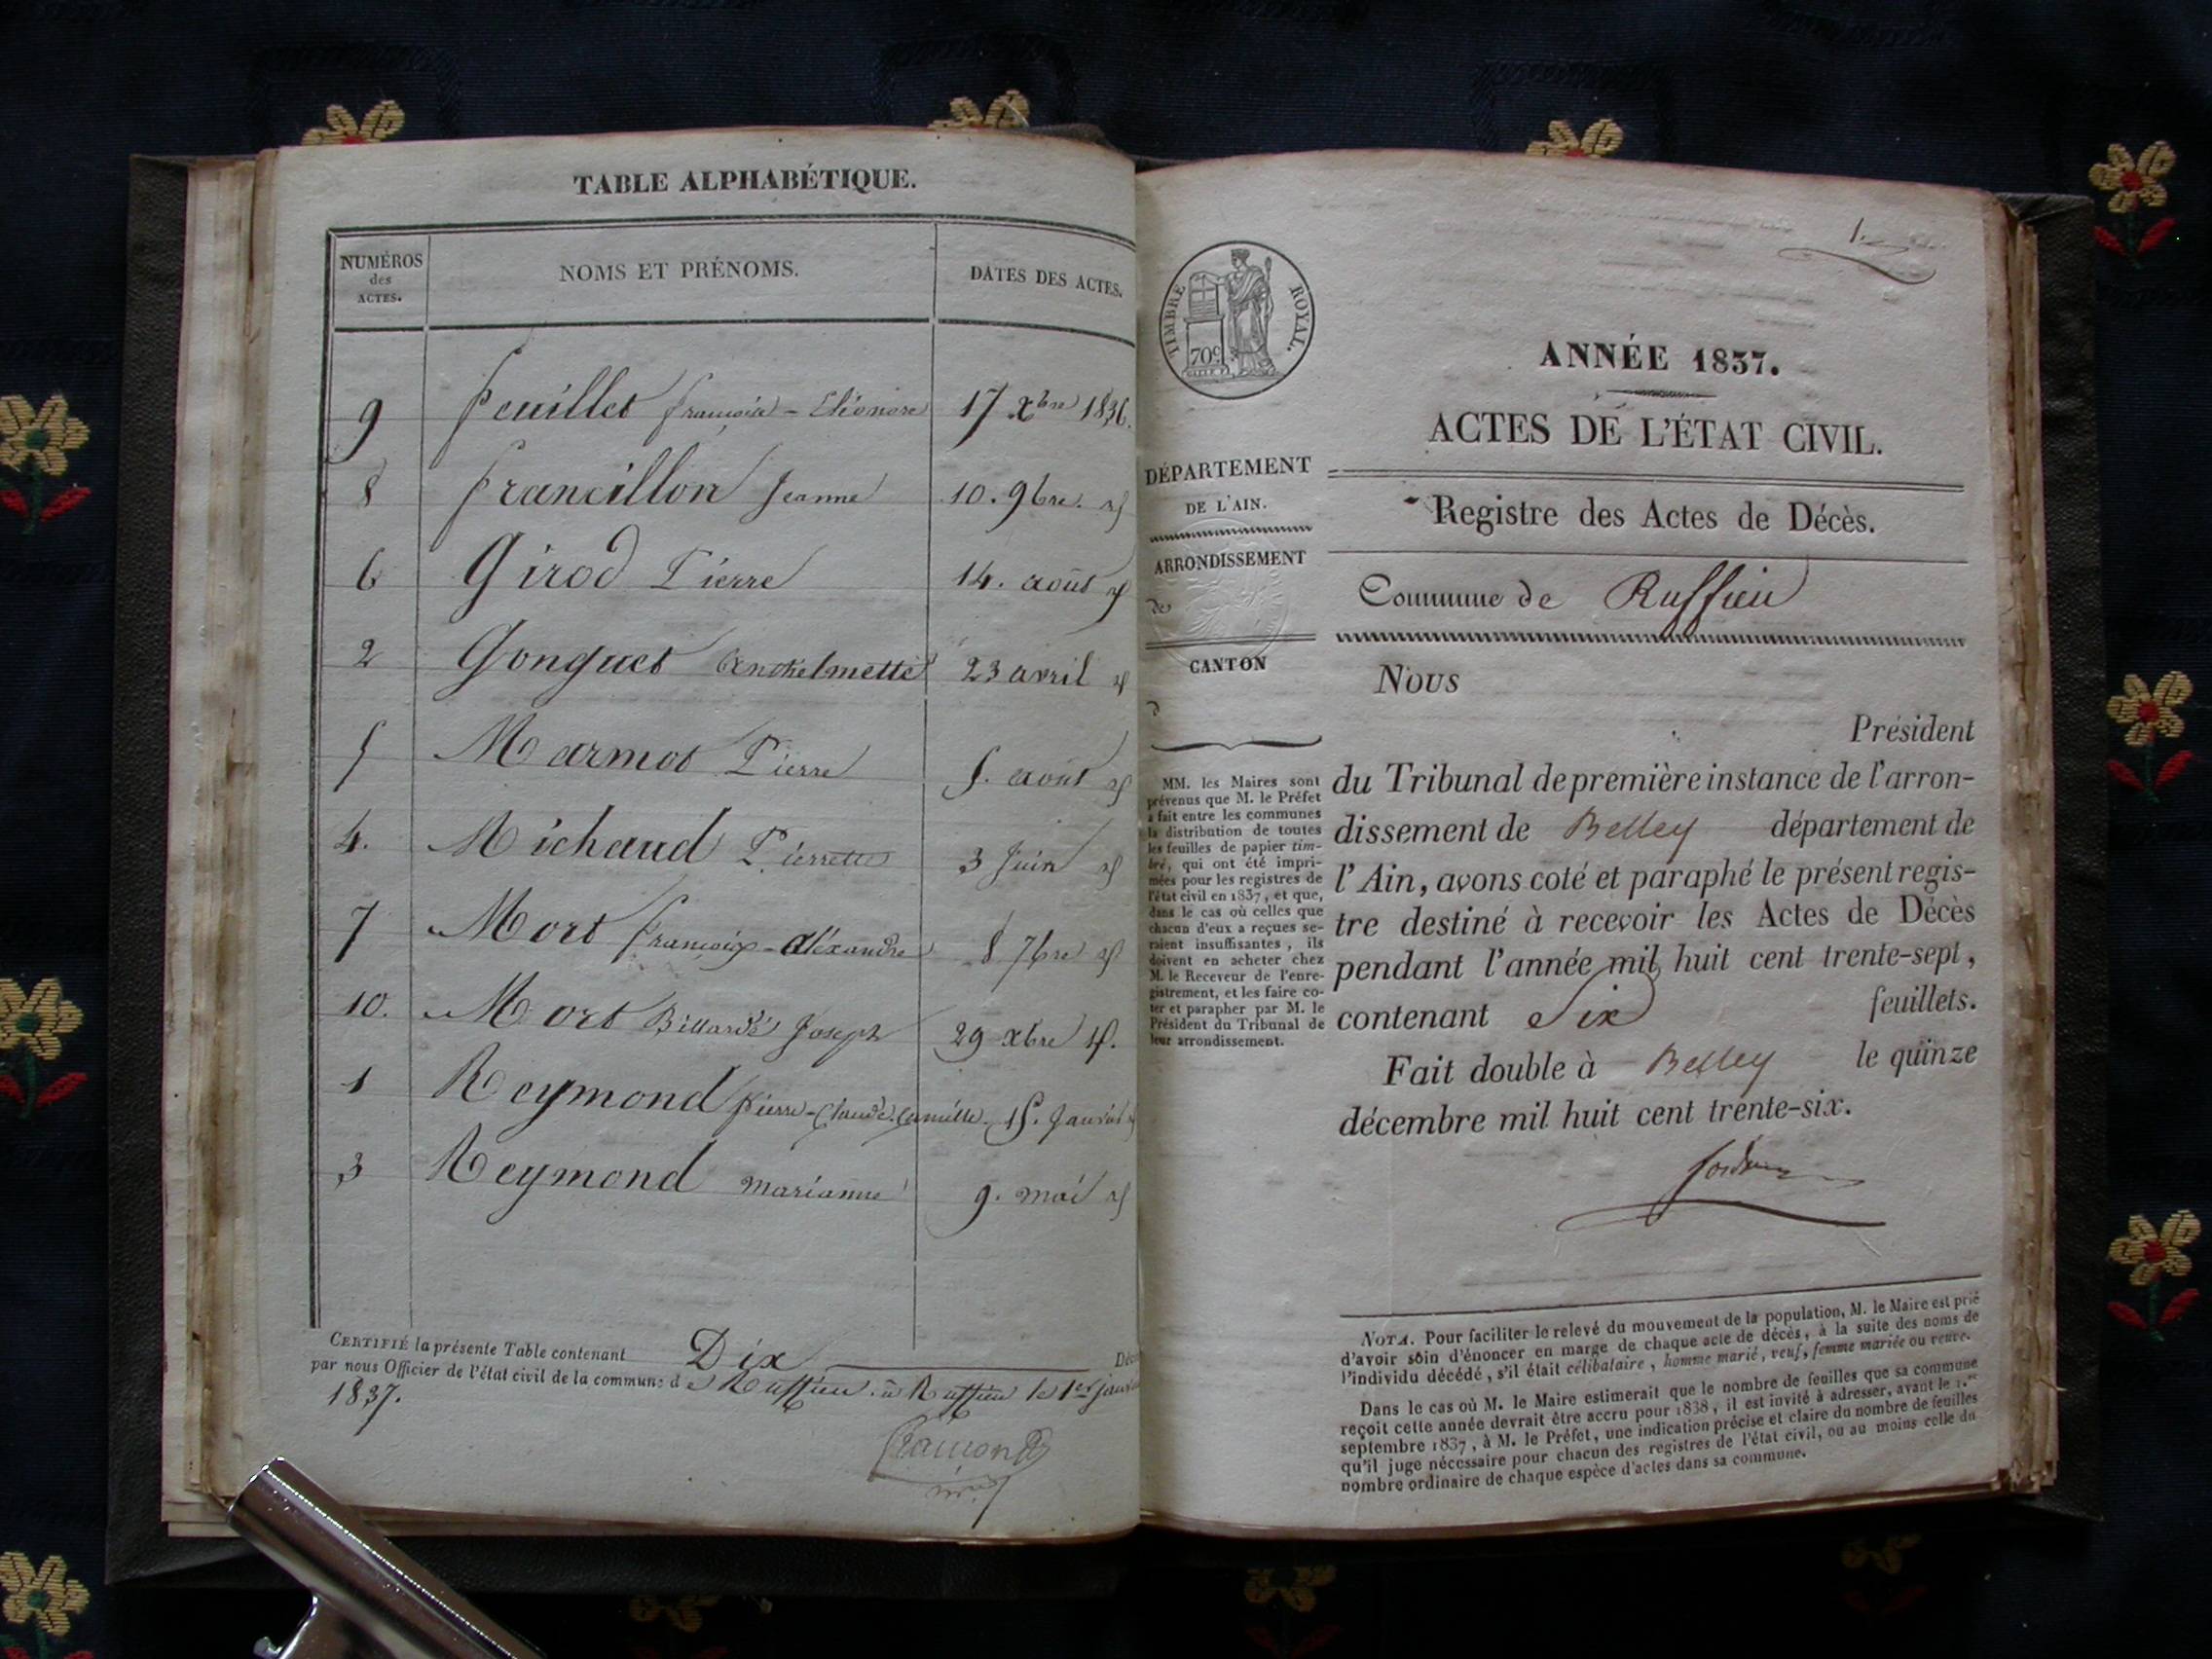 TABLE ALPHABÉTIQUE.
NUMÉROS
des
ACTES.
NOMS ET PRÉNOMS.
DATES DES ACTES.
9 feuillet françoise - Eléonore 17 Xbre 1836.
8 francillon Jeanne 10. 9bre. id
6 Girod Pierre 14. août id
2 Gonguet Anthelmette 23 avril id
5 Marmot Pierre 5. août id
4. Michaud Pierrette 3 Juin id
7 Mort françois - Aléxandre 8 7bre id
10. Mort Billardé Joseph 29 xbre id.
1 Reymond pierre - Claude. Camille. 15. Janvier
3 Reymond marianne 9. mai id
CERTIFIÉ la présente Table contenant Dix Décè
par nous Officier de l'état civil de la commune de Ruffieu. à Ruffieu le 1er janv
1837.
1.
TIMBRE ROYAL.
70c
ANNÉE 1837.
ACTES DE L'ÉTAT CIVIL.
Registre des Actes de Décès.
Commune de Ruffieu
DÉPARTEMENT
DE L'AIN.
ARRONDISSEMENT
de
CANTON
d
MM. les Maires sont
prévenus que M. le Préfet
a fait entre les communes
la distribution de toutes
les feuilles de papier tim-
bré, qui ont été impri-
mées pour les registres de
l'état civil en 1837, et que,
dans le cas où celles que
chacun d'eux a reçues se-
raient insuffisantes, ils
doivent en acheter chez
M. le Receveur de l'enre-
gistrement, et les faire co-
ter et parapher par M. le
Président du Tribunal de
leur arrondissement.
Nous
Président
du Tribunal de première instance de l'arron-
dissement de Belley département de
l'Ain, avons coté et paraphé le présent regis-
tre destiné à recevoir les Actes de Décès
pendant l'année mil huit cent trente-sept,
contenant Six feuillets.
Fait double à Belley le quinze
décembre mil huit cent trente-six.
NOTA. Pour faciliter le relevé du mouvement de la population, M. le Maire est prié
d'avoir soin d'énoncer en marge de chaque acte de décès, à la suite des noms de
l'individu décédé, s'il était célibataire, homme marié, veuf, femme mariée ou veuve.
Dans le cas où M. le Maire estimerait que le nombre de feuilles que sa commune
reçoit cette année devrait être accru pour 1838, il est invité à adresser, avant le 1.er
septembre 1837, à M. le Préfet, une indication précise et claire du nombre de feuilles
qu'il juge nécessaire pour chacun des registres de l'état civil, ou au moins celle du
nombre ordinaire de chaque espèce d'actes dans sa commune.